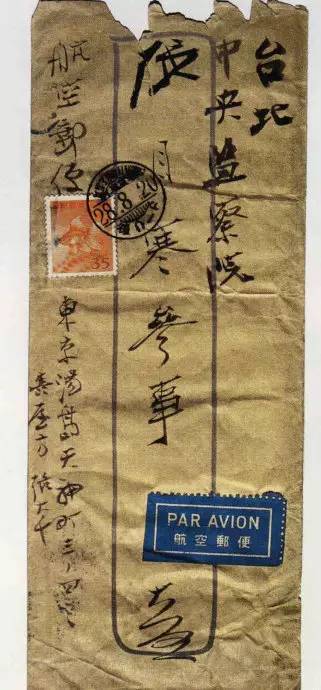 台北
中央監察院
張目寒參事
航空郵便
東京湯島天神町三ノ四
屋方 張大千
28.8.20
35
PAR AVION
航空郵便